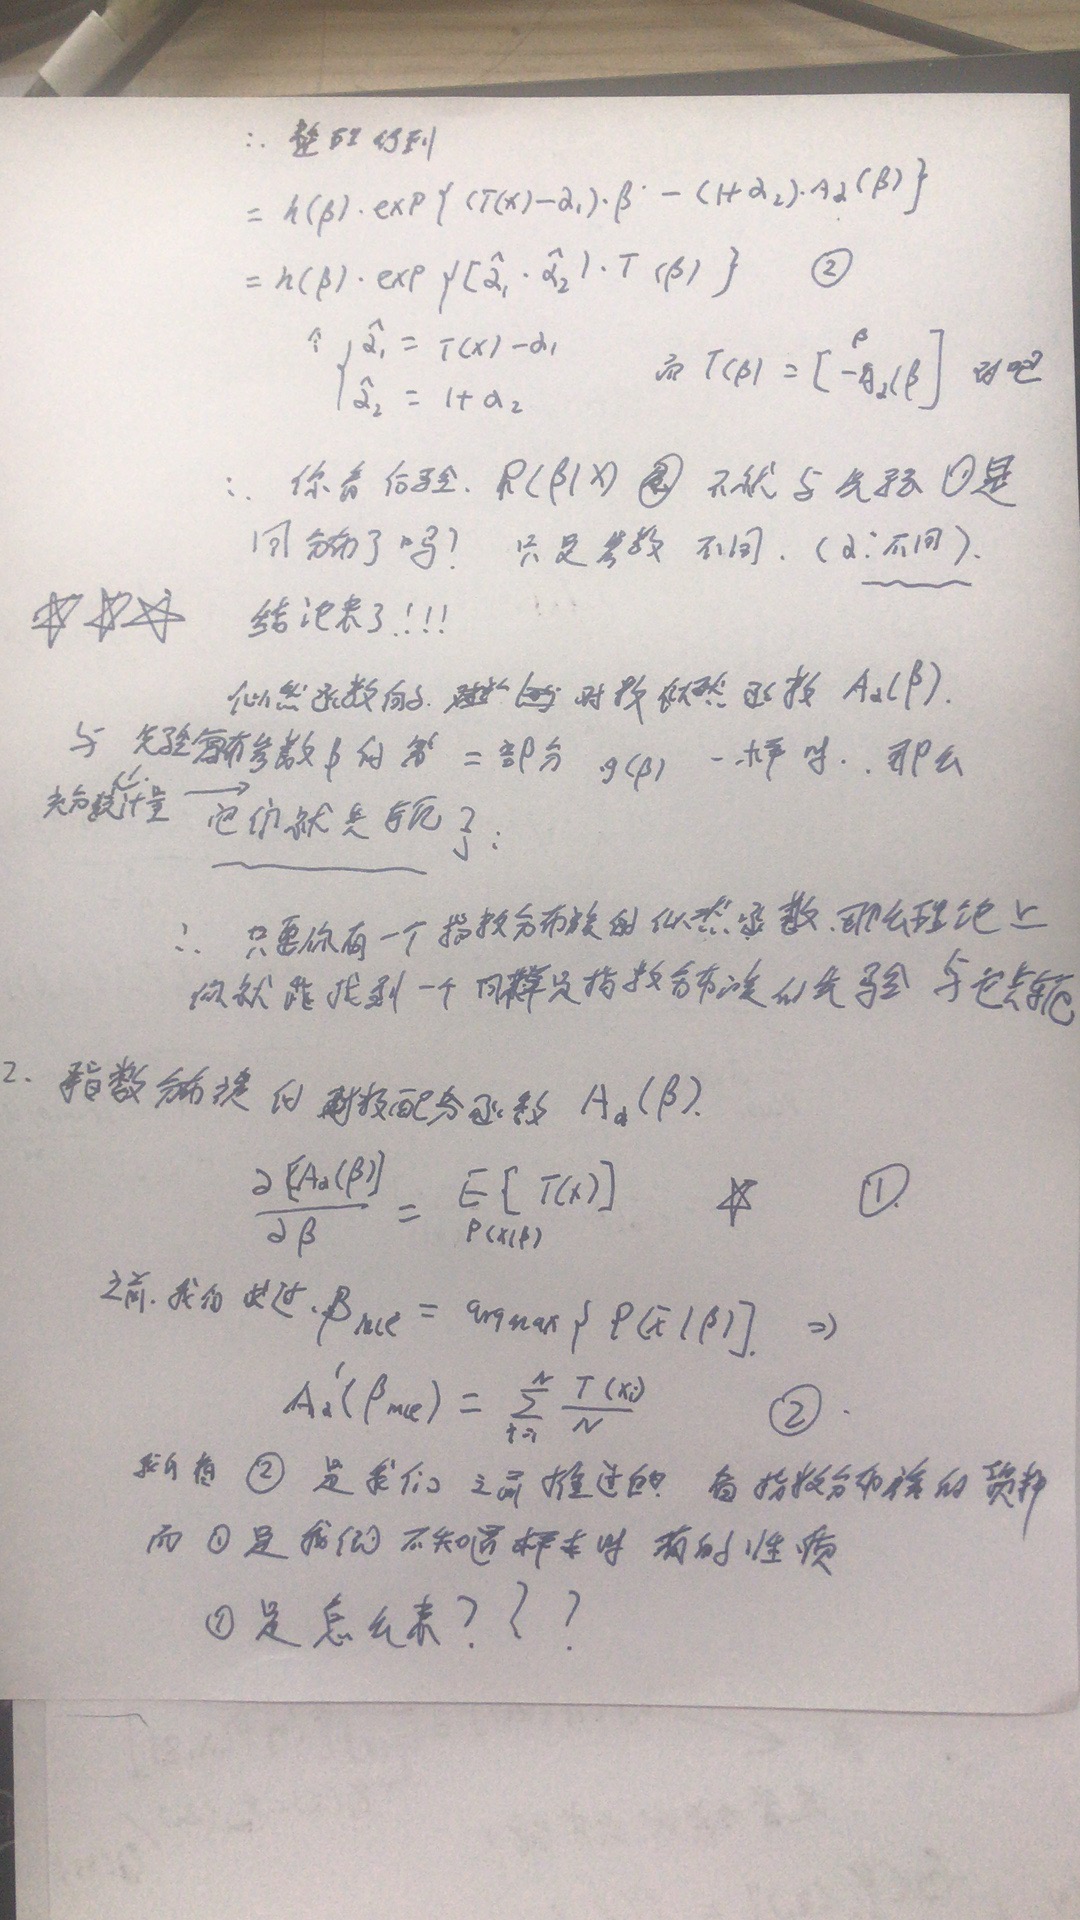 ∴ 整理得到
= h(β)·exp{(T(x)-α₁)·β - (1+α₂)·A_α(β)}
= h(β)·exp{[α̂₁·α̂₂]·T(β)} ②
↑ { α̂₁ = T(x)-α₁
α̂₂ = 1+α₂
而 T(β) = [β -A_α(β] 对吧
∴ 你看后验 P(β|X) ② 不就与先验①是
同分布了吗? 只是参数不同.(α:不同).
☆☆☆ 结论来了!!!
似然函数的 对数似然函数 A_α(β).
与先验分布参数β的第二部分 g(β) 一样时. 那么
充分统计量 → 它们就共轭了.
∴ 只要你有一个指数分布族的似然函数.那么理论上
你就能找到一个同样是指数分布族的先验与它共轭
2. 指数分布族的对数配分函数 A_α(β).
∂[A_α(β)]/∂β = E_{P(x|β)}[T(x)] ☆ ①
之前.我们 过.β_mle = argmax{P(x|β)}. ⇒
A_α'(β_mle) = Σ_{i=1}^{N} T(xi)/N ②.
② 是我们之前推过的 看指数分布族的资料
而①是我们不知道样本时 有的性质
①是怎么来???